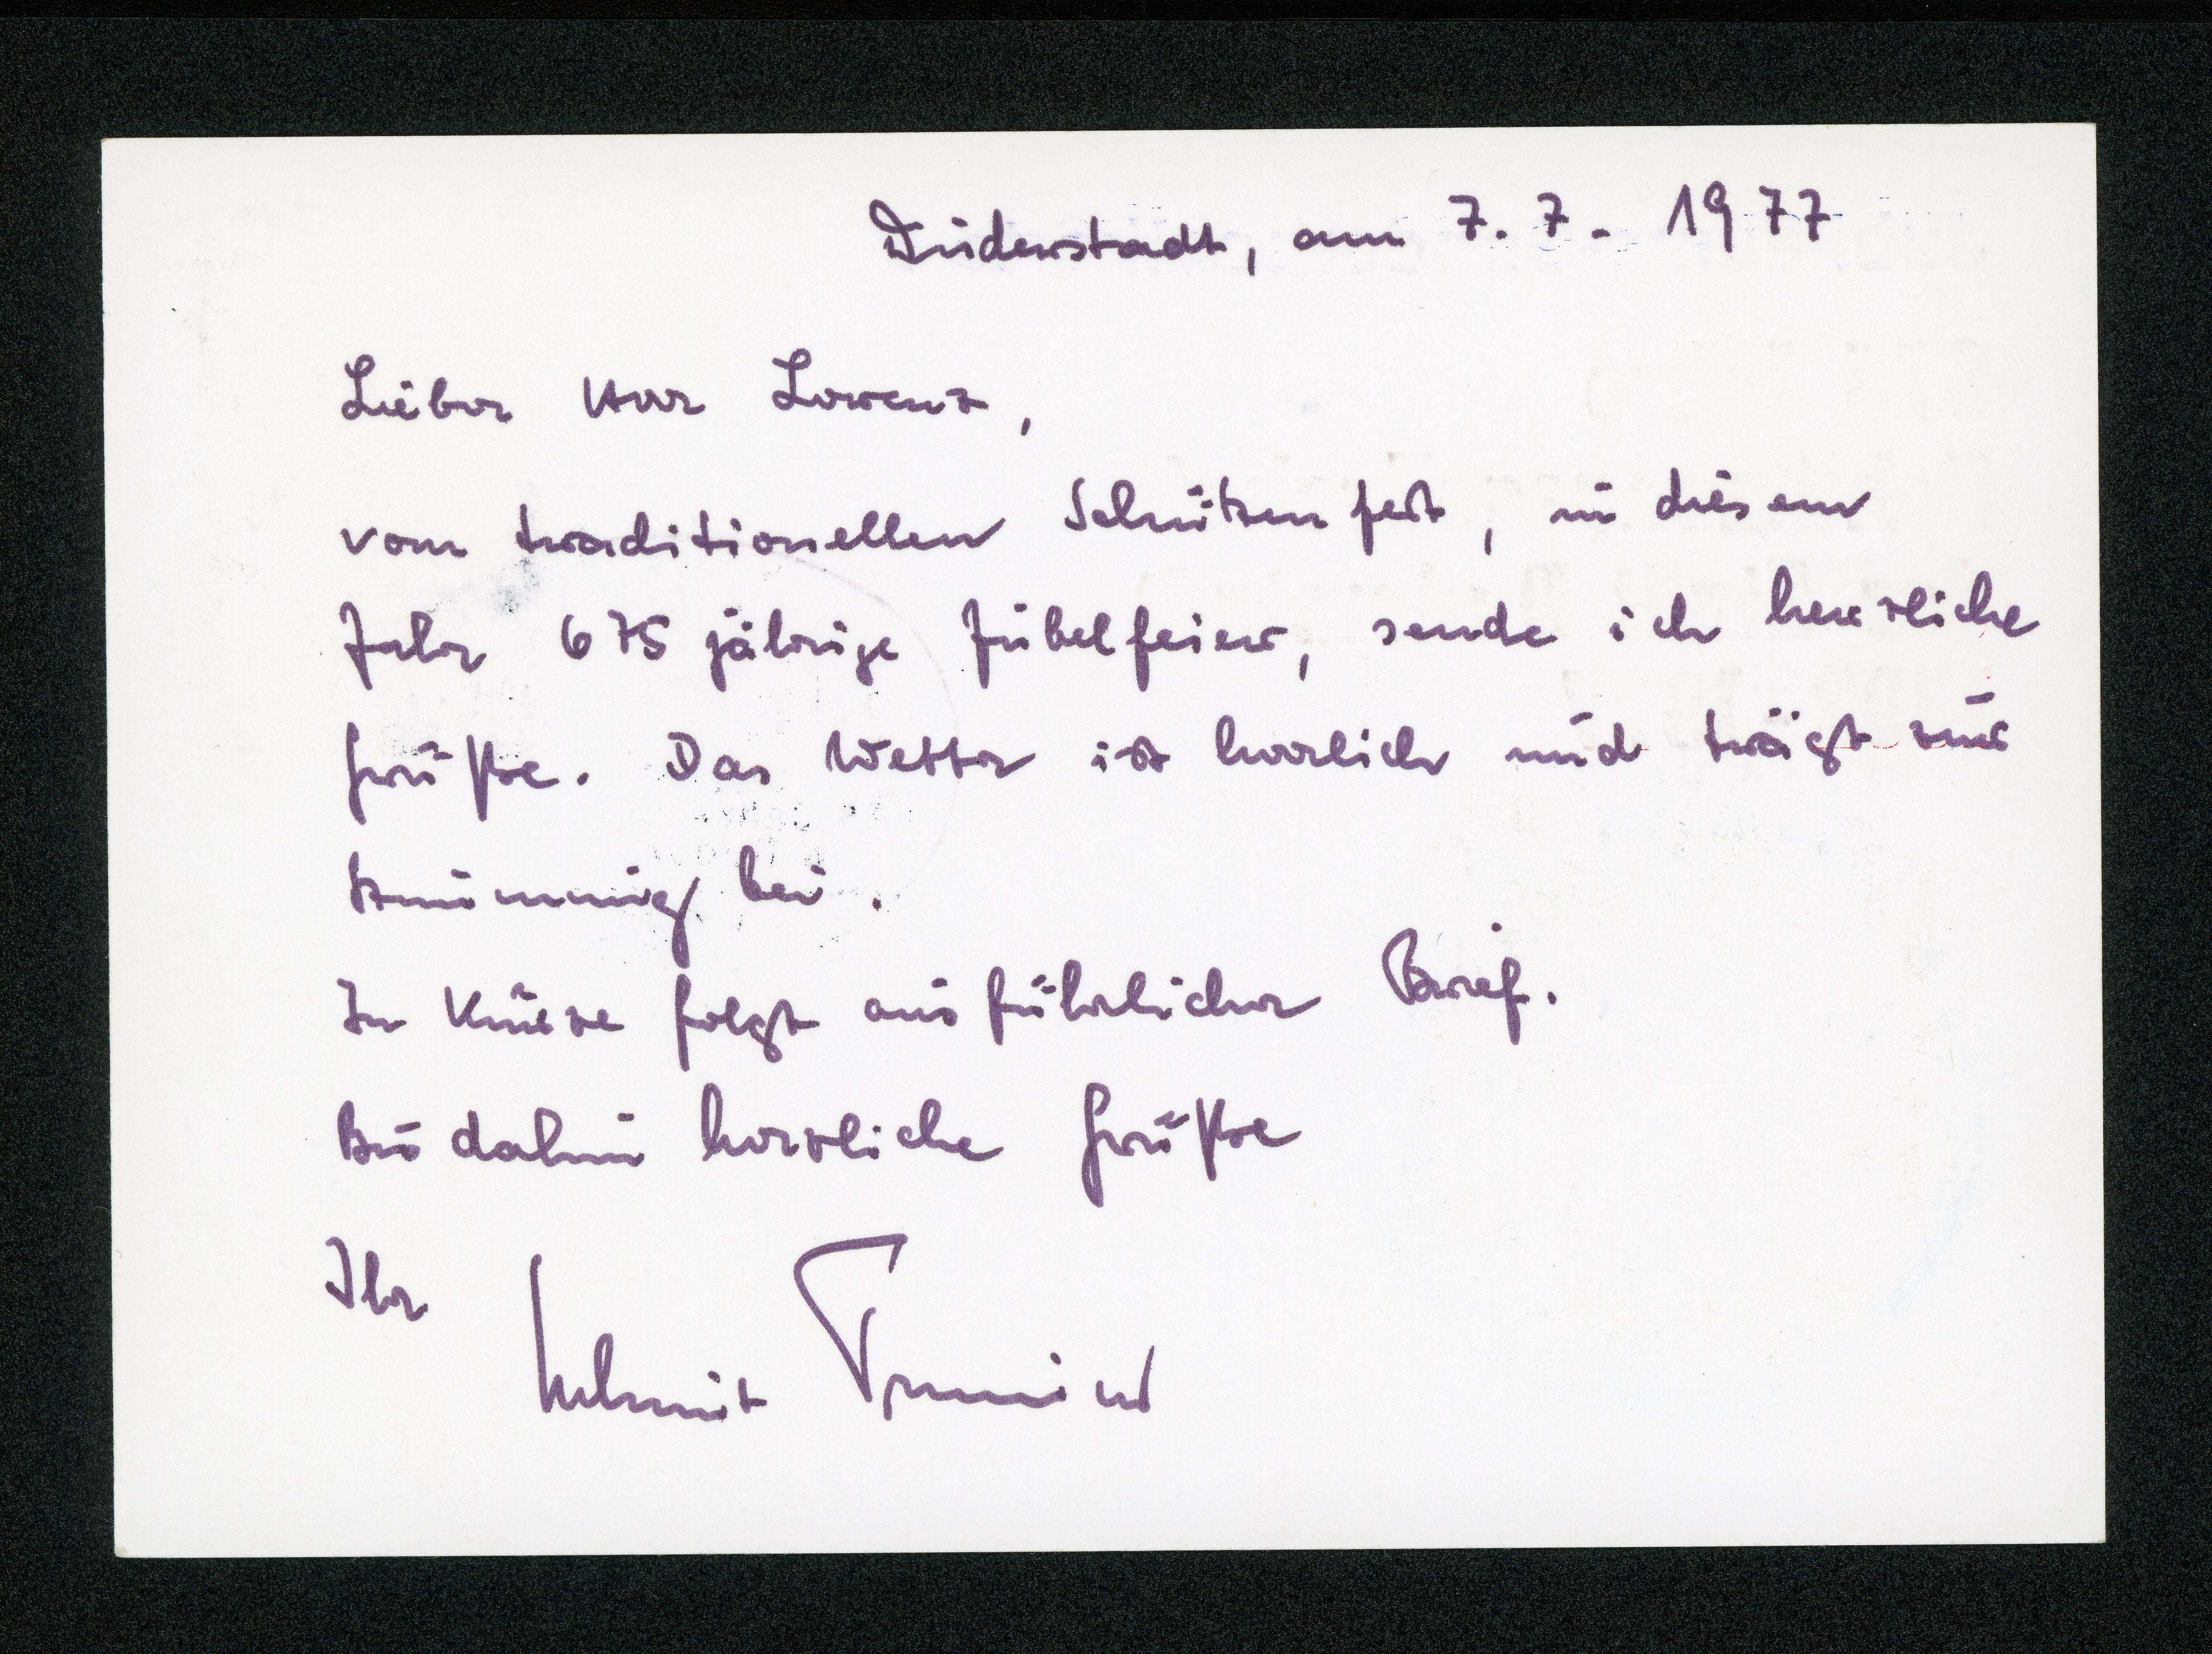 Duderstadt, am 7.7.1977
Lieber Herr Lorenz,
vom traditionellen Schützenfest, in diesem
Jahr 675 jährige Jubelfeier, sende ich herzliche
Grüße. Das Wetter ist herrlich und trägt zur
Stimmung bei.
In Kürze folgt ausführlicher Brief.
Bis dahin herzliche Grüße
Ihr Helmut